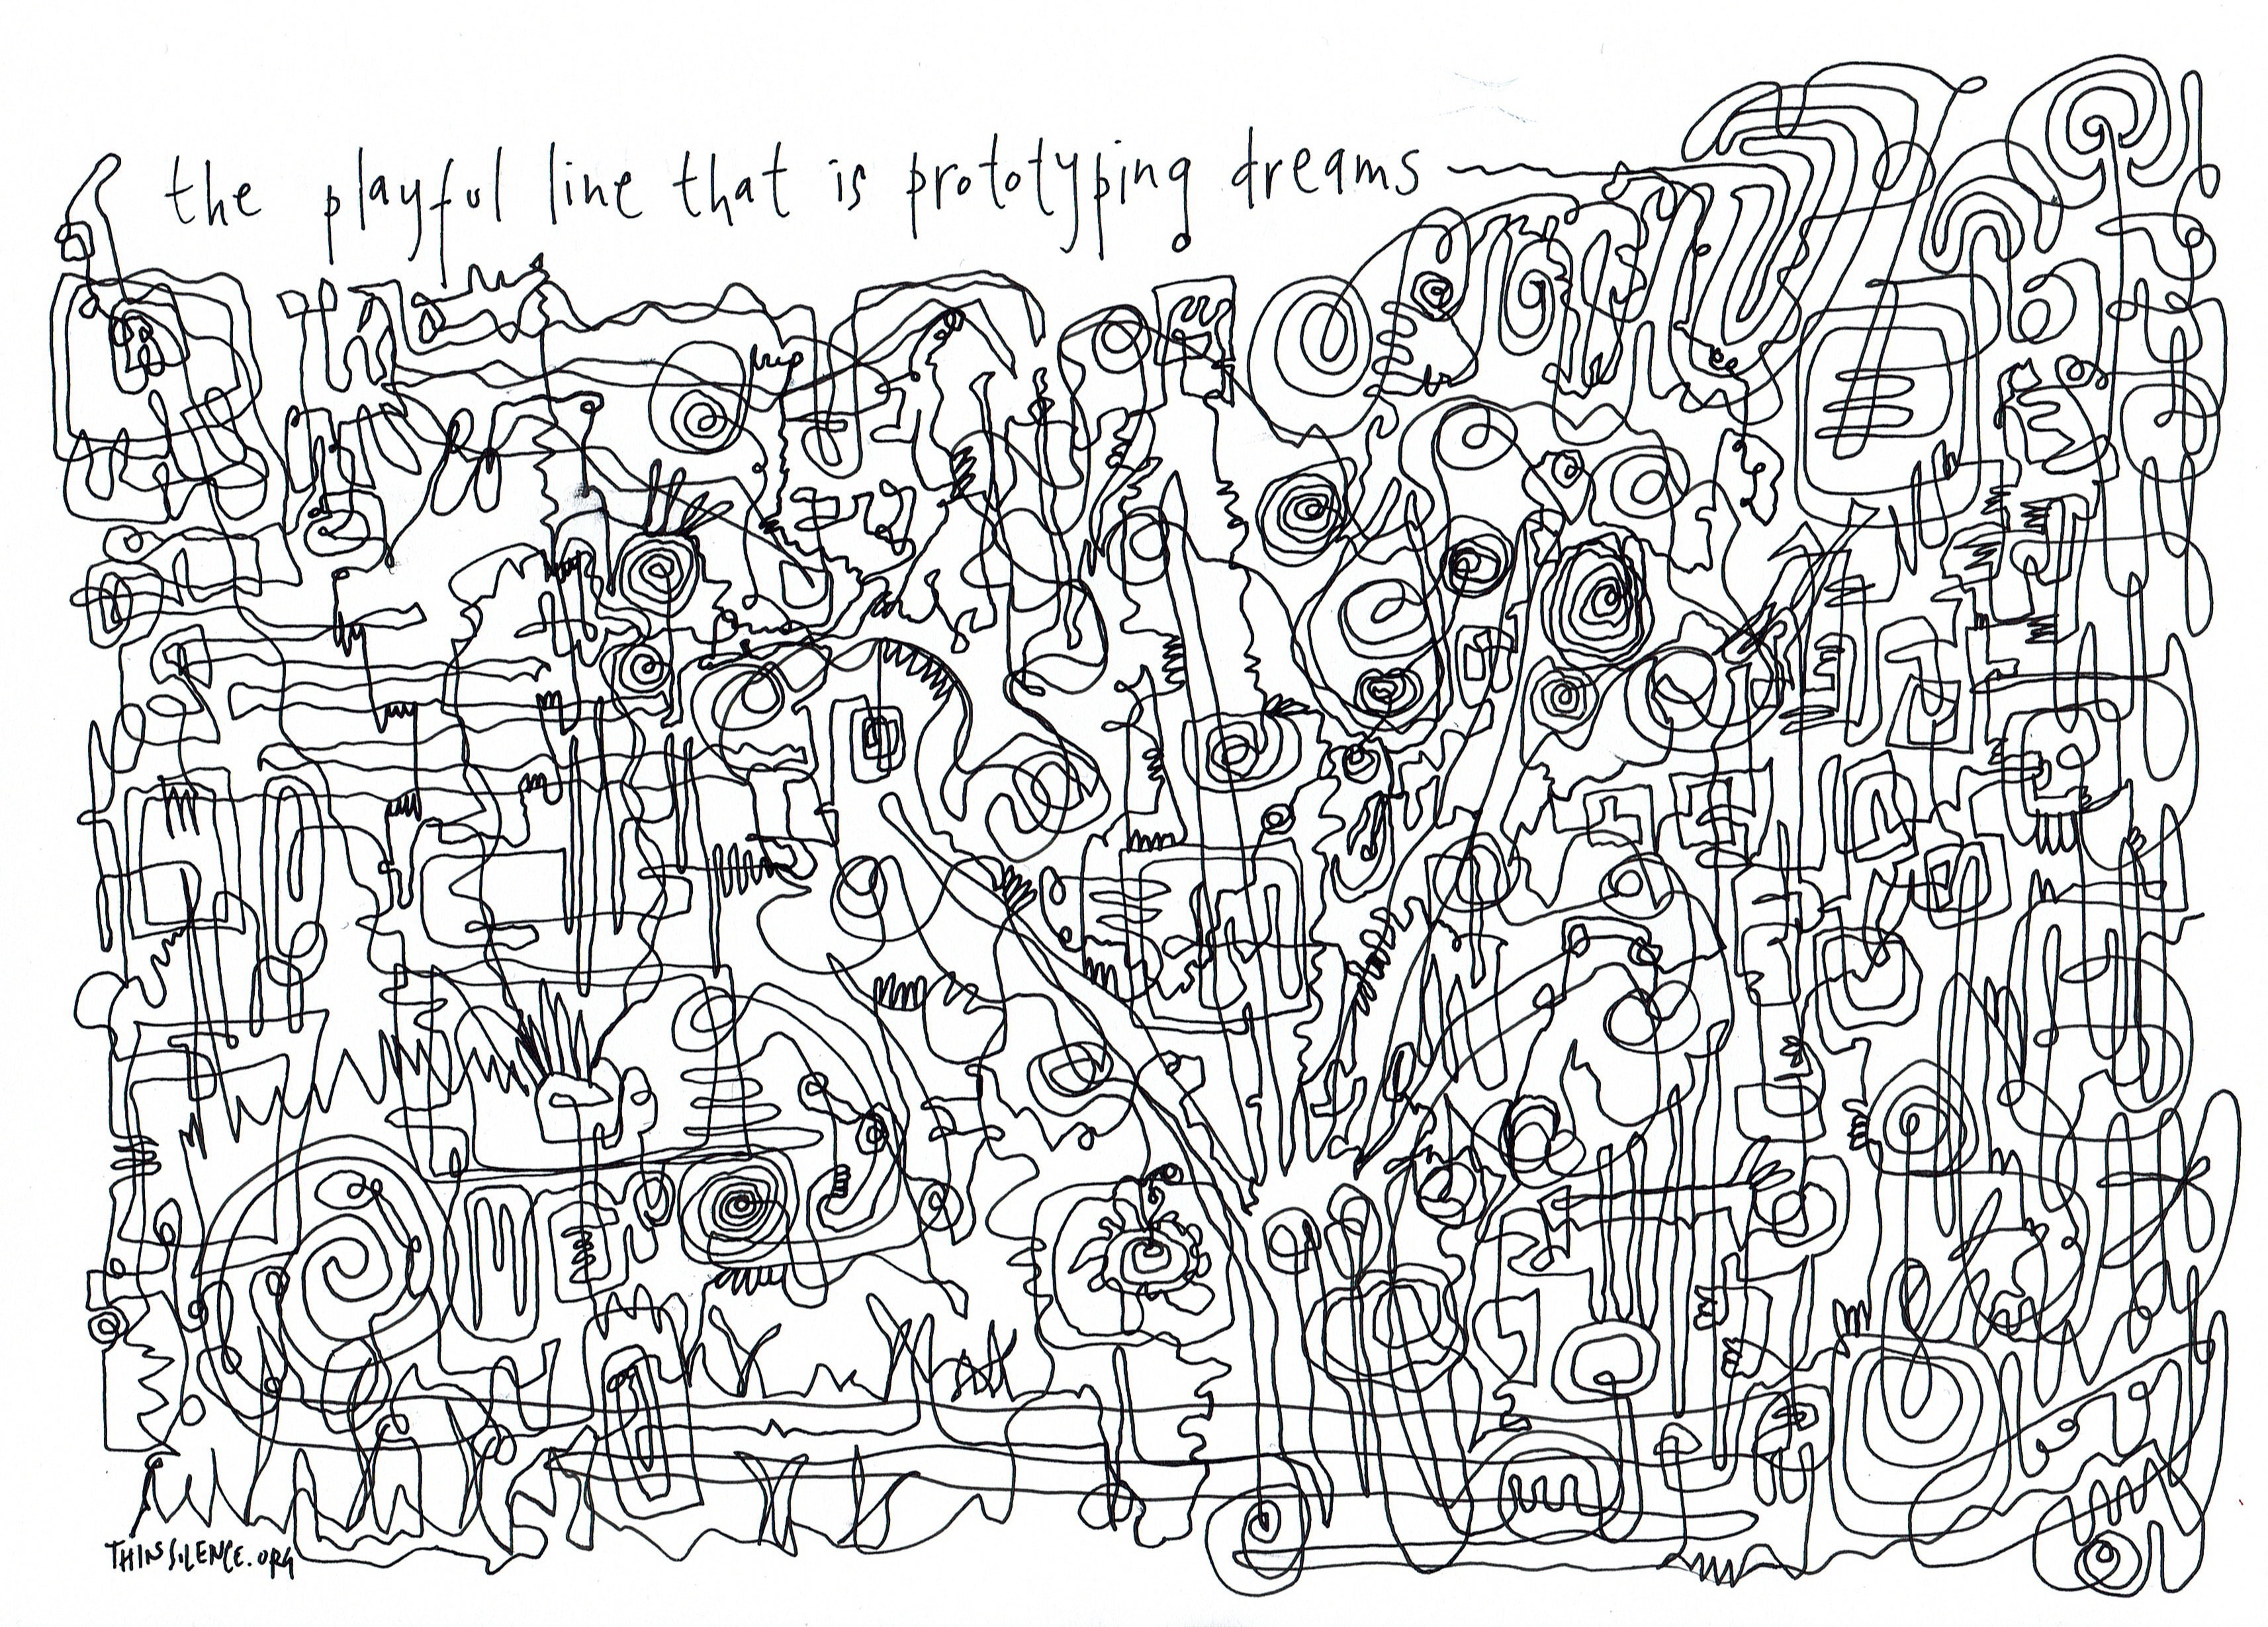 the playful line that is prototyping dreams
THINSILENCE.ORG